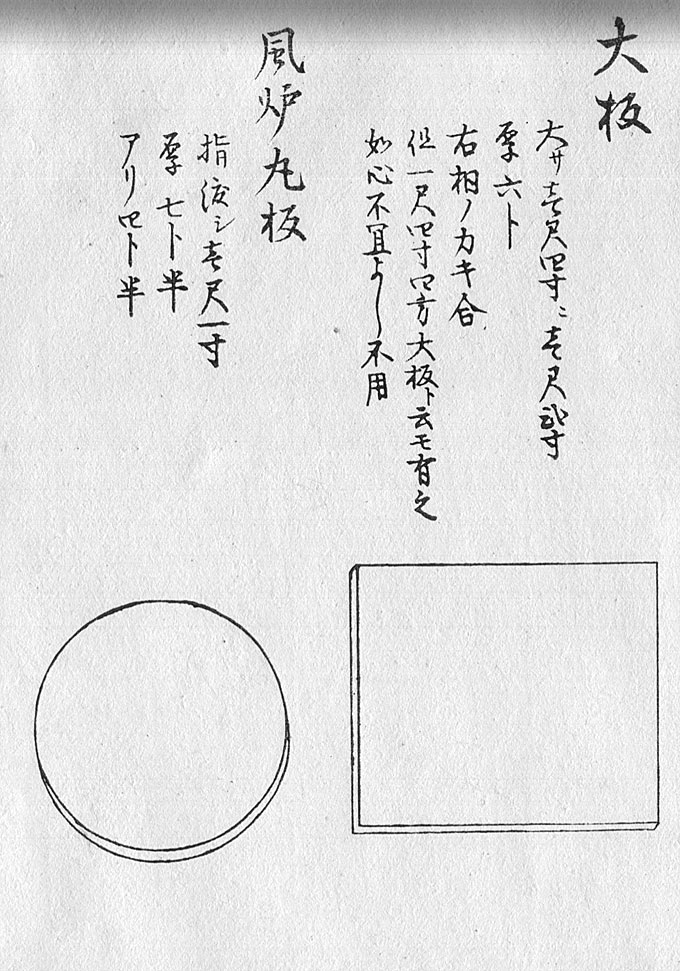 大板
大サ壱尺四寸ニ壱尺弐寸
厚六卜
右桐ノカキ合
但一尺四寸四方大板ト云モ有之
如心不宜よし不用
風炉丸板
指渡シ壱尺一寸
厚七卜半
アリ四卜半